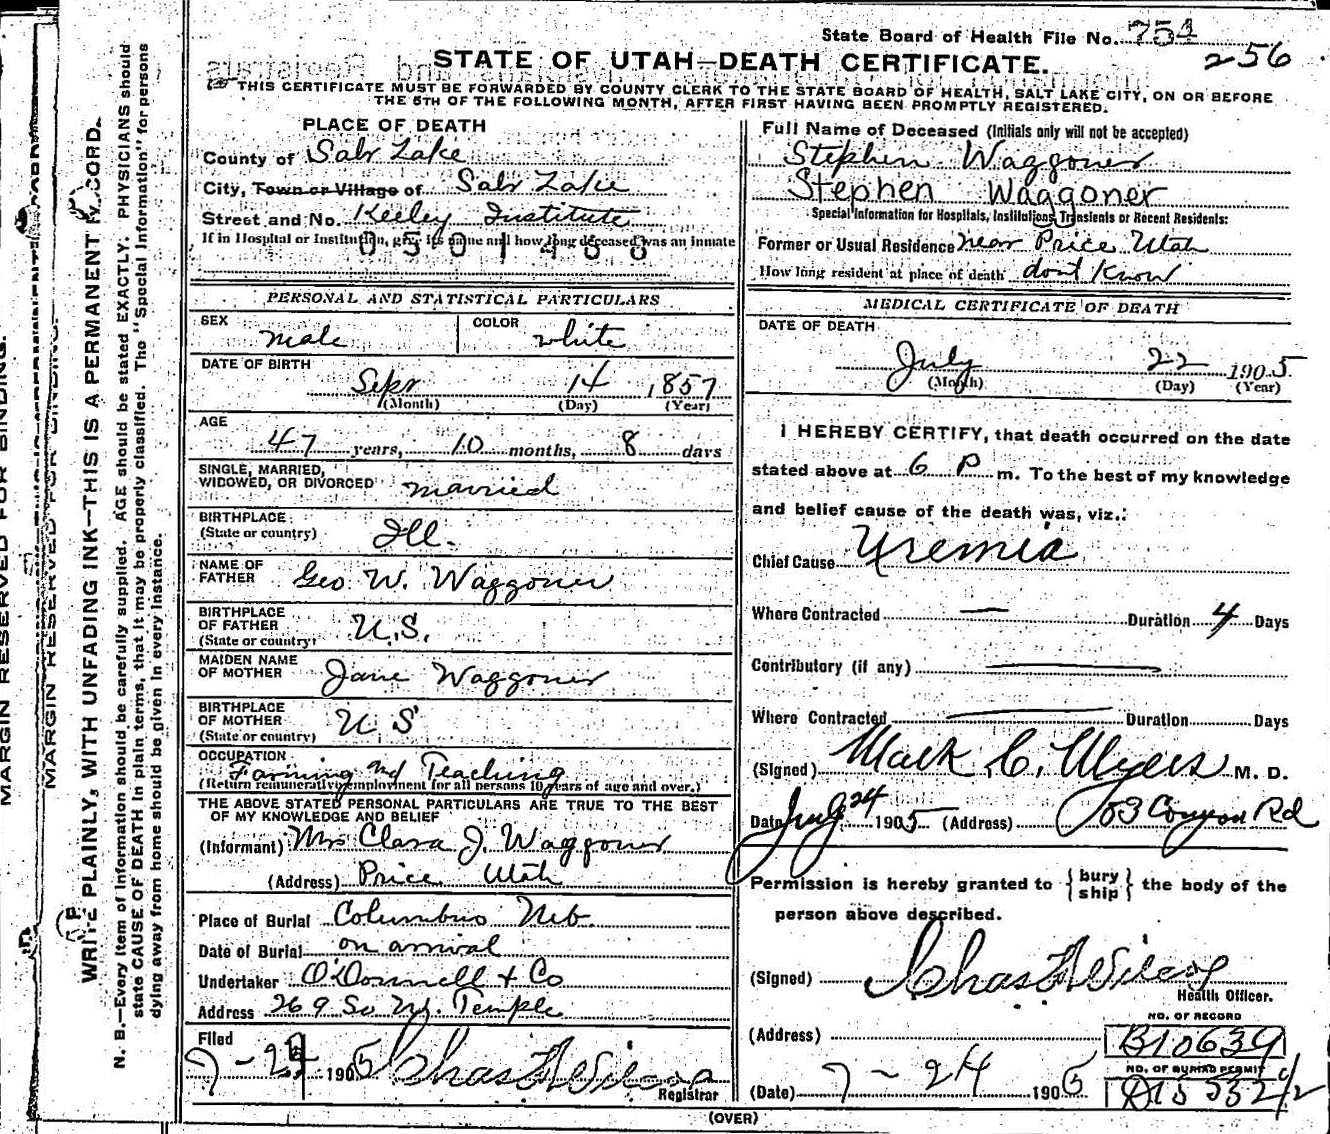 State Board of Health File No. 754
256
STATE OF UTAH—DEATH CERTIFICATE.
THIS CERTIFICATE MUST BE FORWARDED BY COUNTY CLERK TO THE STATE BOARD OF HEALTH, SALT LAKE CITY, ON OR BEFORE
THE 5TH OF THE FOLLOWING MONTH, AFTER FIRST HAVING BEEN PROMPTLY REGISTERED.
MARGIN RESERVED FOR BINDING.
MARGIN RESERVED FOR BINDING.
WRITE PLAINLY, WITH UNFADING INK—THIS IS A PERMANENT RECORD.
N. B.—Every item of Information should be carefully supplied. AGE should be stated EXACTLY. PHYSICIANS should
state CAUSE OF DEATH in plain terms, that it may be properly classified. The "Special Information" for persons
dying away from home should be given in every instance.
PLACE OF DEATH
County of Salt Lake
City, Town or Village of Salt Lake
Street and No. Keeley Institute
If in Hospital or Institution, give its name and how long deceased was an inmate
0501468
PERSONAL AND STATISTICAL PARTICULARS
SEX male
COLOR white
DATE OF BIRTH
Sept 14 1857
(Month) (Day) (Year)
AGE
47 years, 10 months, 8 days
SINGLE, MARRIED,
WIDOWED, OR DIVORCED married
BIRTHPLACE
(State or country) Ill.
NAME OF
FATHER Geo W. Waggoner
BIRTHPLACE
OF FATHER
(State or country) U.S.
MAIDEN NAME
OF MOTHER Jane Waggoner
BIRTHPLACE
OF MOTHER
(State or country) U.S
OCCUPATION
Farming and Teaching
(Return remunerative employment for all persons 10 years of age and over.)
THE ABOVE STATED PERSONAL PARTICULARS ARE TRUE TO THE BEST
OF MY KNOWLEDGE AND BELIEF
(Informant) Mrs Clara J. Waggoner
(Address) Price Utah
Place of Burial Columbus Neb.
Date of Burial on arrival
Undertaker O'Donnell & Co
Address 269 So W. Temple
Filed
7-24 1905 Chas F Wilcox
Registrar
Full Name of Deceased (Initials only will not be accepted)
Stephen Waggoner
Stephen Waggoner
Special Information for Hospitals, Institutions, Transients or Recent Residents:
Former or Usual Residence near Price Utah
How long resident at place of death dont know
MEDICAL CERTIFICATE OF DEATH
DATE OF DEATH
July 22 1905
(Month) (Day) (Year)
I HEREBY CERTIFY, that death occurred on the date
stated above at 6 P m. To the best of my knowledge
and belief cause of the death was, viz.:
Chief Cause Uremia
Where Contracted — Duration 4 Days
Contributory (if any) —
Where Contracted — Duration Days
(Signed) Mark C. Myers M. D.
Date July 24 1905 (Address) 103 Canyon Rd
Permission is hereby granted to {bury
ship} the body of the
person above described.
(Signed) Chas F Wilcox
Health Officer.
(Address)
NO. OF RECORD
B10639
(Date) 7-24 1905
NO. OF BURIAL PERMIT
(OVER)